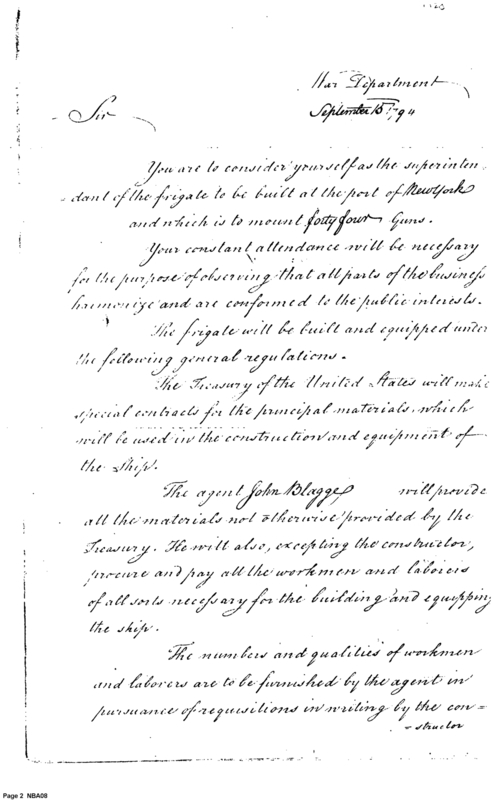 War Department
September 15 1794
Sir
You are to consider yourself as the superinten
dant of the frigate to be built at the port of New York
and which is to mount forty four Guns.
Your constant attendance will be necessary
for the purpose of observing that all parts of the business
harmonize and are conformed to the public interests.
The frigate will be built and equipped under
the following general regulations.
The Treasury of the United States will make
special contracts for the principal materials, which
will be used in the construction and equipment of
the Ship.
The agent John Blagge will provide
all the materials not otherwise provided by the
Treasury. He will also, excepting the constructor,
procure and pay all the workmen and laborers
of all sorts necessary for the building and equipping
the ship.
The numbers and qualities of workmen
and laborers are to be furnished by the agent in
pursuance of requisitions in writing by the con=
=structor
Page 2 NBA08